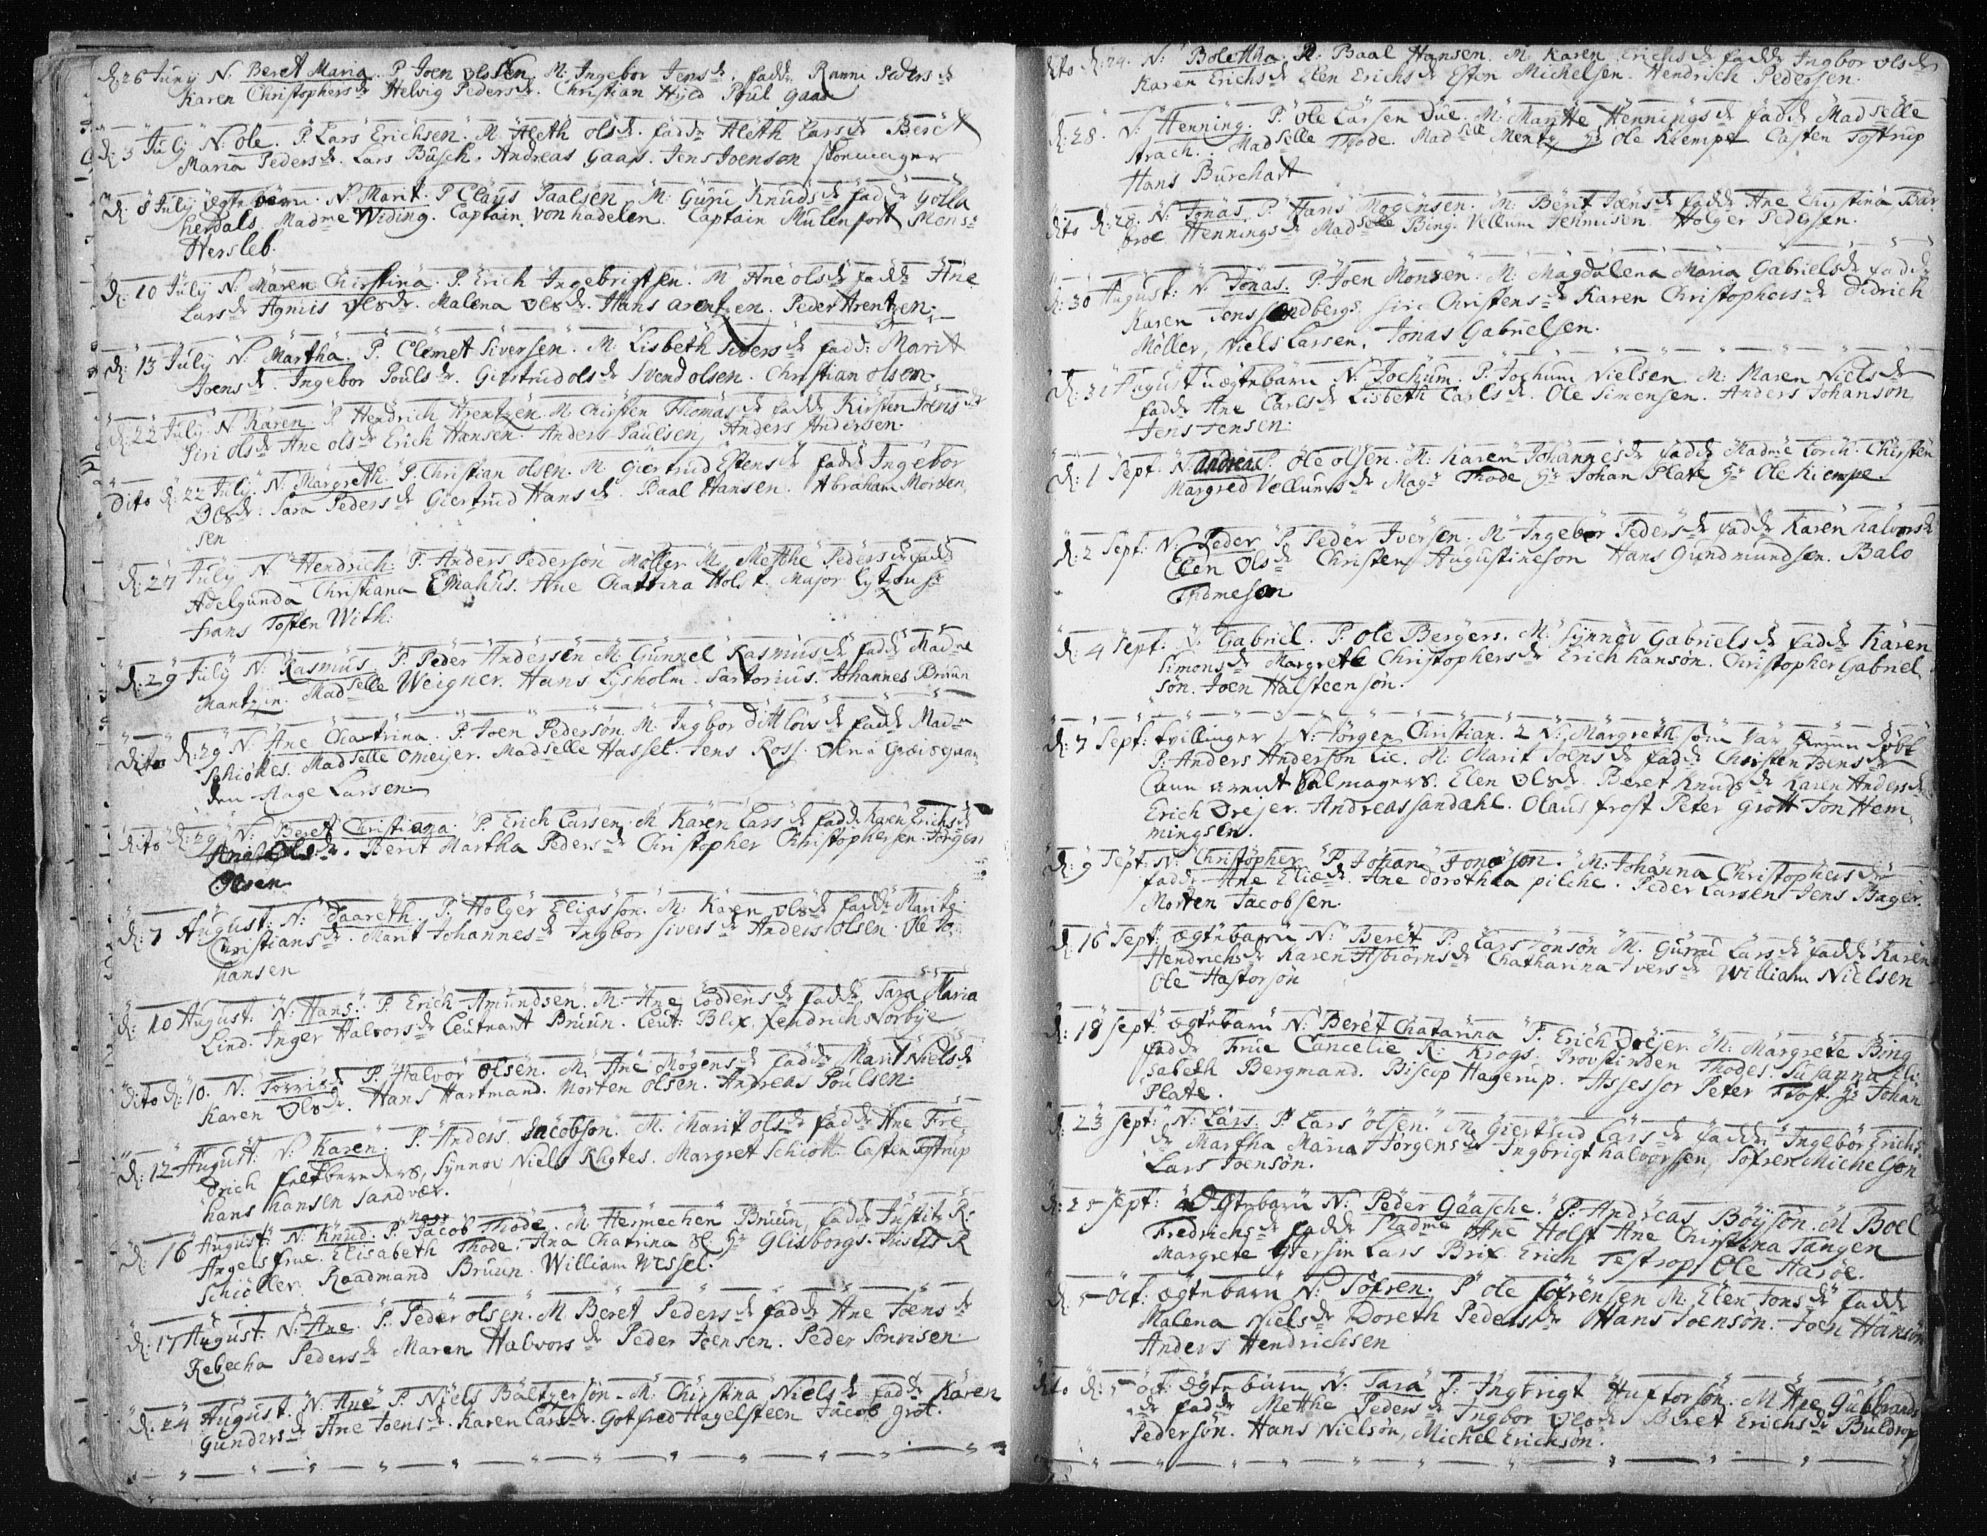 d: 26 Juny N: Beret Maria. P. Joen Olssen. M. Ingebor Jensdr. fadd: Ranni Padersdr
Karen Christophersdr Helvig Pedersdr. Christian Hyld Poul Gaas
d: 3 July N. Ole. P. Lars Erichsen. M. Aleth Olsdr. fadd: Aleth Larsdr Beret
Maria Pedersdr. Lars Busch. Andreas Gaas. Jens Joenson skomager
d: 8 July ægte barn. N. Marit. P. Claus Paalsen. M. Guru Knudsdr fadd: Golla
herdals Madme Widing. Captain von hadelen. Captain Mulenfort Mons:
Hersleb.
d: 10 July N. Maren Chirstina. P. Erich Ingebrigtsen. M. Ane Olsdr fadd: Ane
Larsdr Agnis Olsdr. Malena Olsdr. Hans Arentzen. Peder Arentzen.
d: 13 July N: Martha. P. Clemet Siversen. M. Lisbeth Siversdr fadd: Marit
Arensdr. Ingebor Poulsdr. Giertrud olsdr Svend olsen. Christian olsen.
d: 22 July N. Karen P. Hendrich Arentzen. M. Chirsten Thomasdr fadd: Kirsten Joensdr
Siri olsdr Ane olsdr Erich Hansen. Anders Paulsen, Anders Andersen.
Dito d: 22 July. N. Margreth. P. Christian olsen. M. Giertrud Estensdr fadd: Ingebor
Olsdr. Sara Pedersdr Giertrud Hansdr. Baal Hansen. Abraham Morten
sen
d: 27 July N. Hendrich. P. Anders Pederson Møller. M. Mette Pedersdr fadd:
Adelgunda Christiana Emahus. Ane Chattrina Holst. Major Lytzou Sr
frans Tosten With.
d: 29 July N: Rasmus. P. Peder Andersen M. Gunnel Rasmusdr fadd: Madme
Mantzin. Madselle Weigner. Hans Lysholm. Sartorius. Johannes Bruun
Dito d: 29 N: Ane Chatrina. P. Joen Pederson M: Ingbor Dittloisdr fadd: Madm
Schiøttes. Madselle Omeyer. Madselle Hassel. Jens Ross.
den Aage Larsen.
Dito d: 29 N: Beret Christiana. P. Erich Larsen. M. Karen Larsdr fadd: Karen Erichsdr
Ane Olsdr. Berit Martha Pedersdr Christopher Christophersen. Jørgen
Olsen
d: 7 August: N: Saareth. P. Holger Eliasson. M. Karen Olsdr fadd: Marite
Christiansdr. Marit Johannesdr Ingbor Siversdr Anders olsen. Ole Jo
hansen
d: 10 August. N: Hans. P. Erich Amundsen. M. Ane Loddensdr fadd: Sara Maria
Lind. Inger Halvorsdr Leutnant Bruun. Leut: Blix. Hendrich Norbye
Dito d: 10. N. P. Halvor Olsen. M. Ane Mogensdr fadd: Marit Nielsdr
Karen Olsdr. Hans Hartmand. Morten olsen. Andreas Poulsen.
d: 12 August: N. Karen. P. Anders Jacobson. M. Marit olsdr fadd: Ane Fre
drich feltberreders, Synnov Niels Rhotes. Margret Schiøtt. Casten Tostrup
hans hansen sandvær.
d: 16 August: N: Knud. P. Herr Jacob Thode. M. Hermechen Bruun, fadd: Justitz R:
Angels frue. Elisabeth Thode. Ana Chatrina Gliisborgs.
Schiøller. Raadmand Bruun. William Wessel.
d: 17 August. N. Ane. P. Peder olsen. M. Beret Pedersdr fadd: Ane Joensdr
Rebecha Pedersdr Maren Halvorsdr Peder Joensen. Peder Sørensen.
d: 24 August. N. Ane P. Niels Baltzerson. M. Chirstina Nielsdr fadd: Karen
Gundersdr Ane Joensdr. Karen Larsdr. Gotfred Hagelsteen Jacob Grot.
Dito d: 24. N: Bolettha. P. Baal Hansen. M. Karen Erichsdr fadd: Ingbor Olsdr
Karen Erichsdr Elen Erichsdr Esten Michelsen. Hendrich Pedersen.
d: 28. N: Henning. P. Ole Larsen Due. M. Maritte Henningsdr fadd: Madselle
Arach. Madselle Thode. Madselle Mentz Hr Ole Kiempe Casten Tostrup
Hans Burchart
Dito d: 28. N: Jonas. P. Hans Mogensen. M: Berit Joensdr fadd: Ane Christina Bar
broe Henningsdr Madselle Bing. Vellum Jenmisen. Holger Pedersen.
d: 30 August: N Jonas. P. Joen Monsen. M: Magdalena Maria Gabrielsdr fadd:
Karen Jens sandbergs Siri Christensdr Karen Christophersdr Didrich
Møller, Niels Larsen. Jonas Gabrielsen.
d: 31 August uægtebarn N. Jochum. P. Jochum Nielsen. M: Maren Nielsdr
fadd: Ane Carlsdr Lisbeth Carlsdr. Ole Simensen. Anders Johanson
Jens Jensen.
d: 1 Sept: N. Andreas. Ole olsen. M: Karen Johannesdr fadd: Madme Lorch. Chirsten
Margred Vellumsdr Magr Thode Hr Johan Plate Hr Ole Kiempe.
d: 2 Sept: N. Peder P. Peder Iversen. M. Ingebor Pedersdr fadd: Karen halvorsdr
Elen Olsdr Christen Augustineson Hans Gundmundsen. Balo
Thomeson
d: 4 Sept: N. Gabriel. P. Ole Bergers. M. Synnøv Gabrielsdr fadd: Karen
Simonsdr Margrete Christophersdr Erich hanson. Christopher Gabriel
søn. Joen Halsteensøn.
d: 7 Sept: tvillinger 1 N: Jørgen Christian. 2 N: Margreth som var døbt
P. Anders Anderson Lie. M. Marit Joensdr fadd: Chirsten
Arent Salmagers. Elen Olsdr. Beret Knudsdr Karen Andersdr
Erich Drejer. Andreas Sandahl. Olaus frost Peter Grott Jon Hem
mingsen.
d: 9 Sept: N: Christopher P. Johan Jonesøn. M: Johanna Christophersdr
fadd: Ane Eliædr. Ane dorothea pilche. Peder Larsen Jens Bager.
Morten Jacobsen.
d: 16 Sept: ægtebarn N: Beret P. Lars Jonsøn M. Guru Larsdr fadd: Karen
Hendrichsdr Karen Asbiørnsdr Chatharina Iversdr William Nielsen
Ole Hastorsøn
d: 18 Sept: ægtebarn N: Beret Chatarina P. Erich Drejer. M: Margrete Bing
fadd: Frue Cancelie R: Krogs. Provstinden Thodes. Susanna Eli
sabeth Bergmand. Biscop Hagerup. Assessor Peter Frost. Hr Johan
Plate.
d: 23 Sept: N. Lars. P. Lars olsen. M. Giertrud Larsdr fadd: Ingebor Erichs
dr Martha Maria Jørgensdr Ingbrigt halvorsen, Sofren Michelson
Lars Joensøn.
d: 25 Sept: Ægtebarn N: Peder Gaasche. P. Andreas Bøyson. M Boel
Fredrichsdr fadd: Madme Ane Holst Ane Chirstina Tangen
Margrete Ytersin Lars Brix. Erich Testrop, Ole Harøe.
d: 5 Oct: ægtebarn N: Søfren. P. Ole Søfrensen M. Elen Jonsdr fadd:
Malena Nielsdr Doreth Pedersdr Hans Joenson. Joen Hanson
Anders Hendrichsen
Dito d: 5 oct: ægtebarn N. Sara P: Ingbrigt Haftorson. M Ane Gulbrands
dr fadd: Metthe Pedersdr Ingbor Olsdr Beret Erichsdr Buldrop
Pedersøn. Hans Nielsøn, Michel Erichsøn.